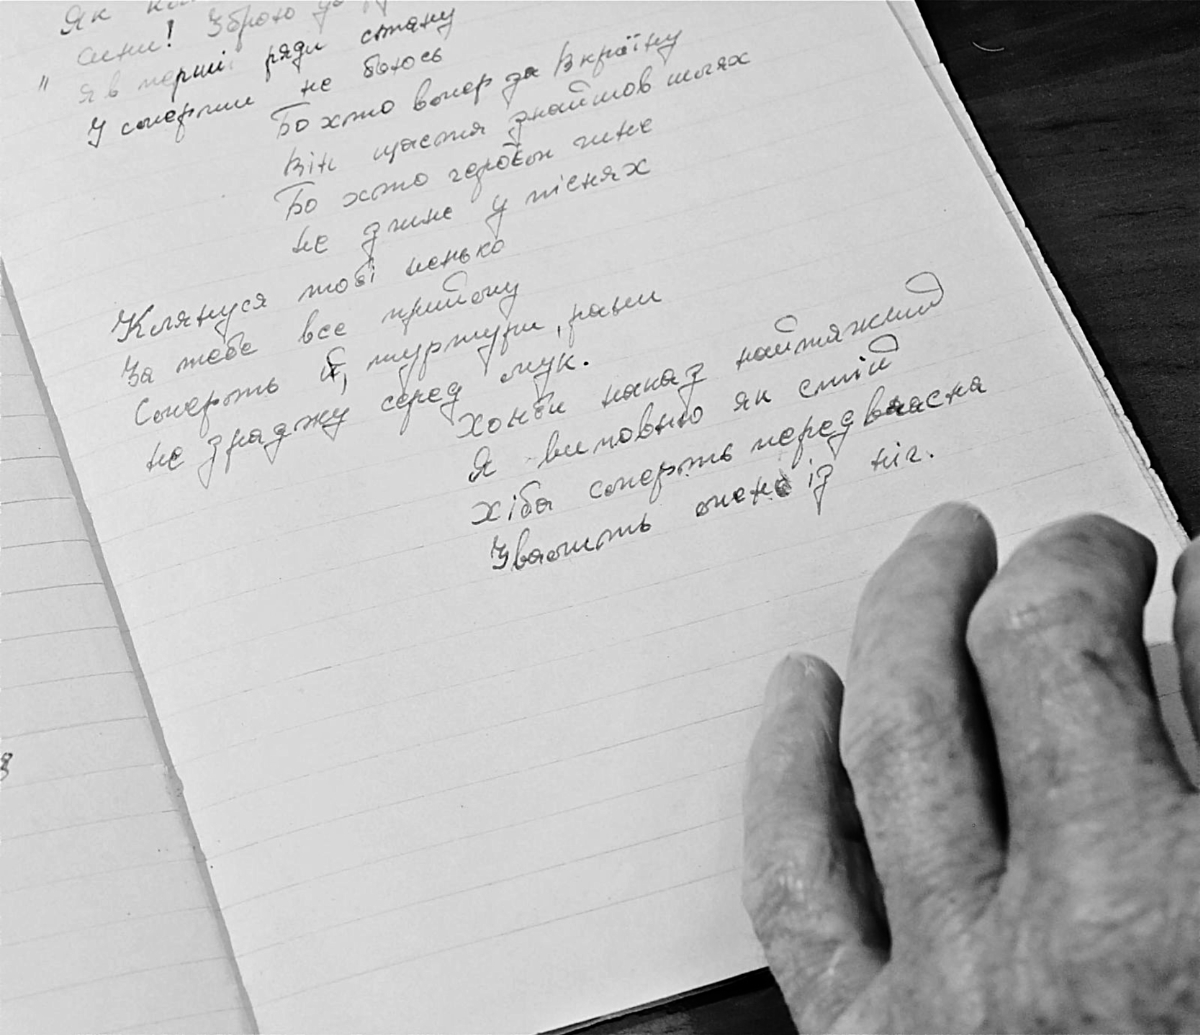 Як
сини! Зброю до
" Я в перші ряди стану
У смерти не боюсь
Бо хто вмер за Вкраїну
Він щастя знайшов шлях
Бо хто героєм гине
Не згине у піснях
Клянуся тобі ненько
За тебе все прийму
Смерть й, тюртури, рани
Не зраджу серед мук.
Хочби наказ найтяжчий
Я виповню як стій
Хіба смерть передвчасна
Звалить мене із ніг.